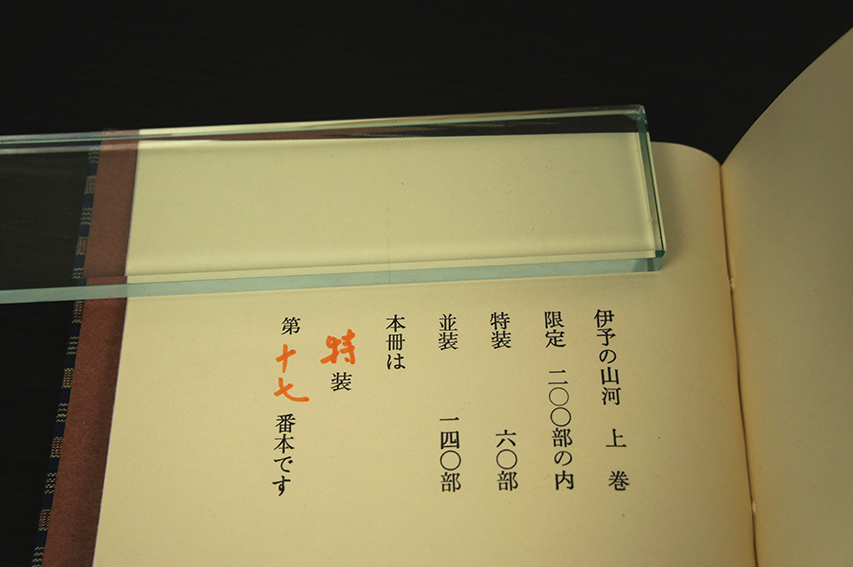 伊予の山河　上　巻
限定　二〇〇部の内
特装　　六〇部
並装　　一四〇部
本冊は
特装
第十七番本です